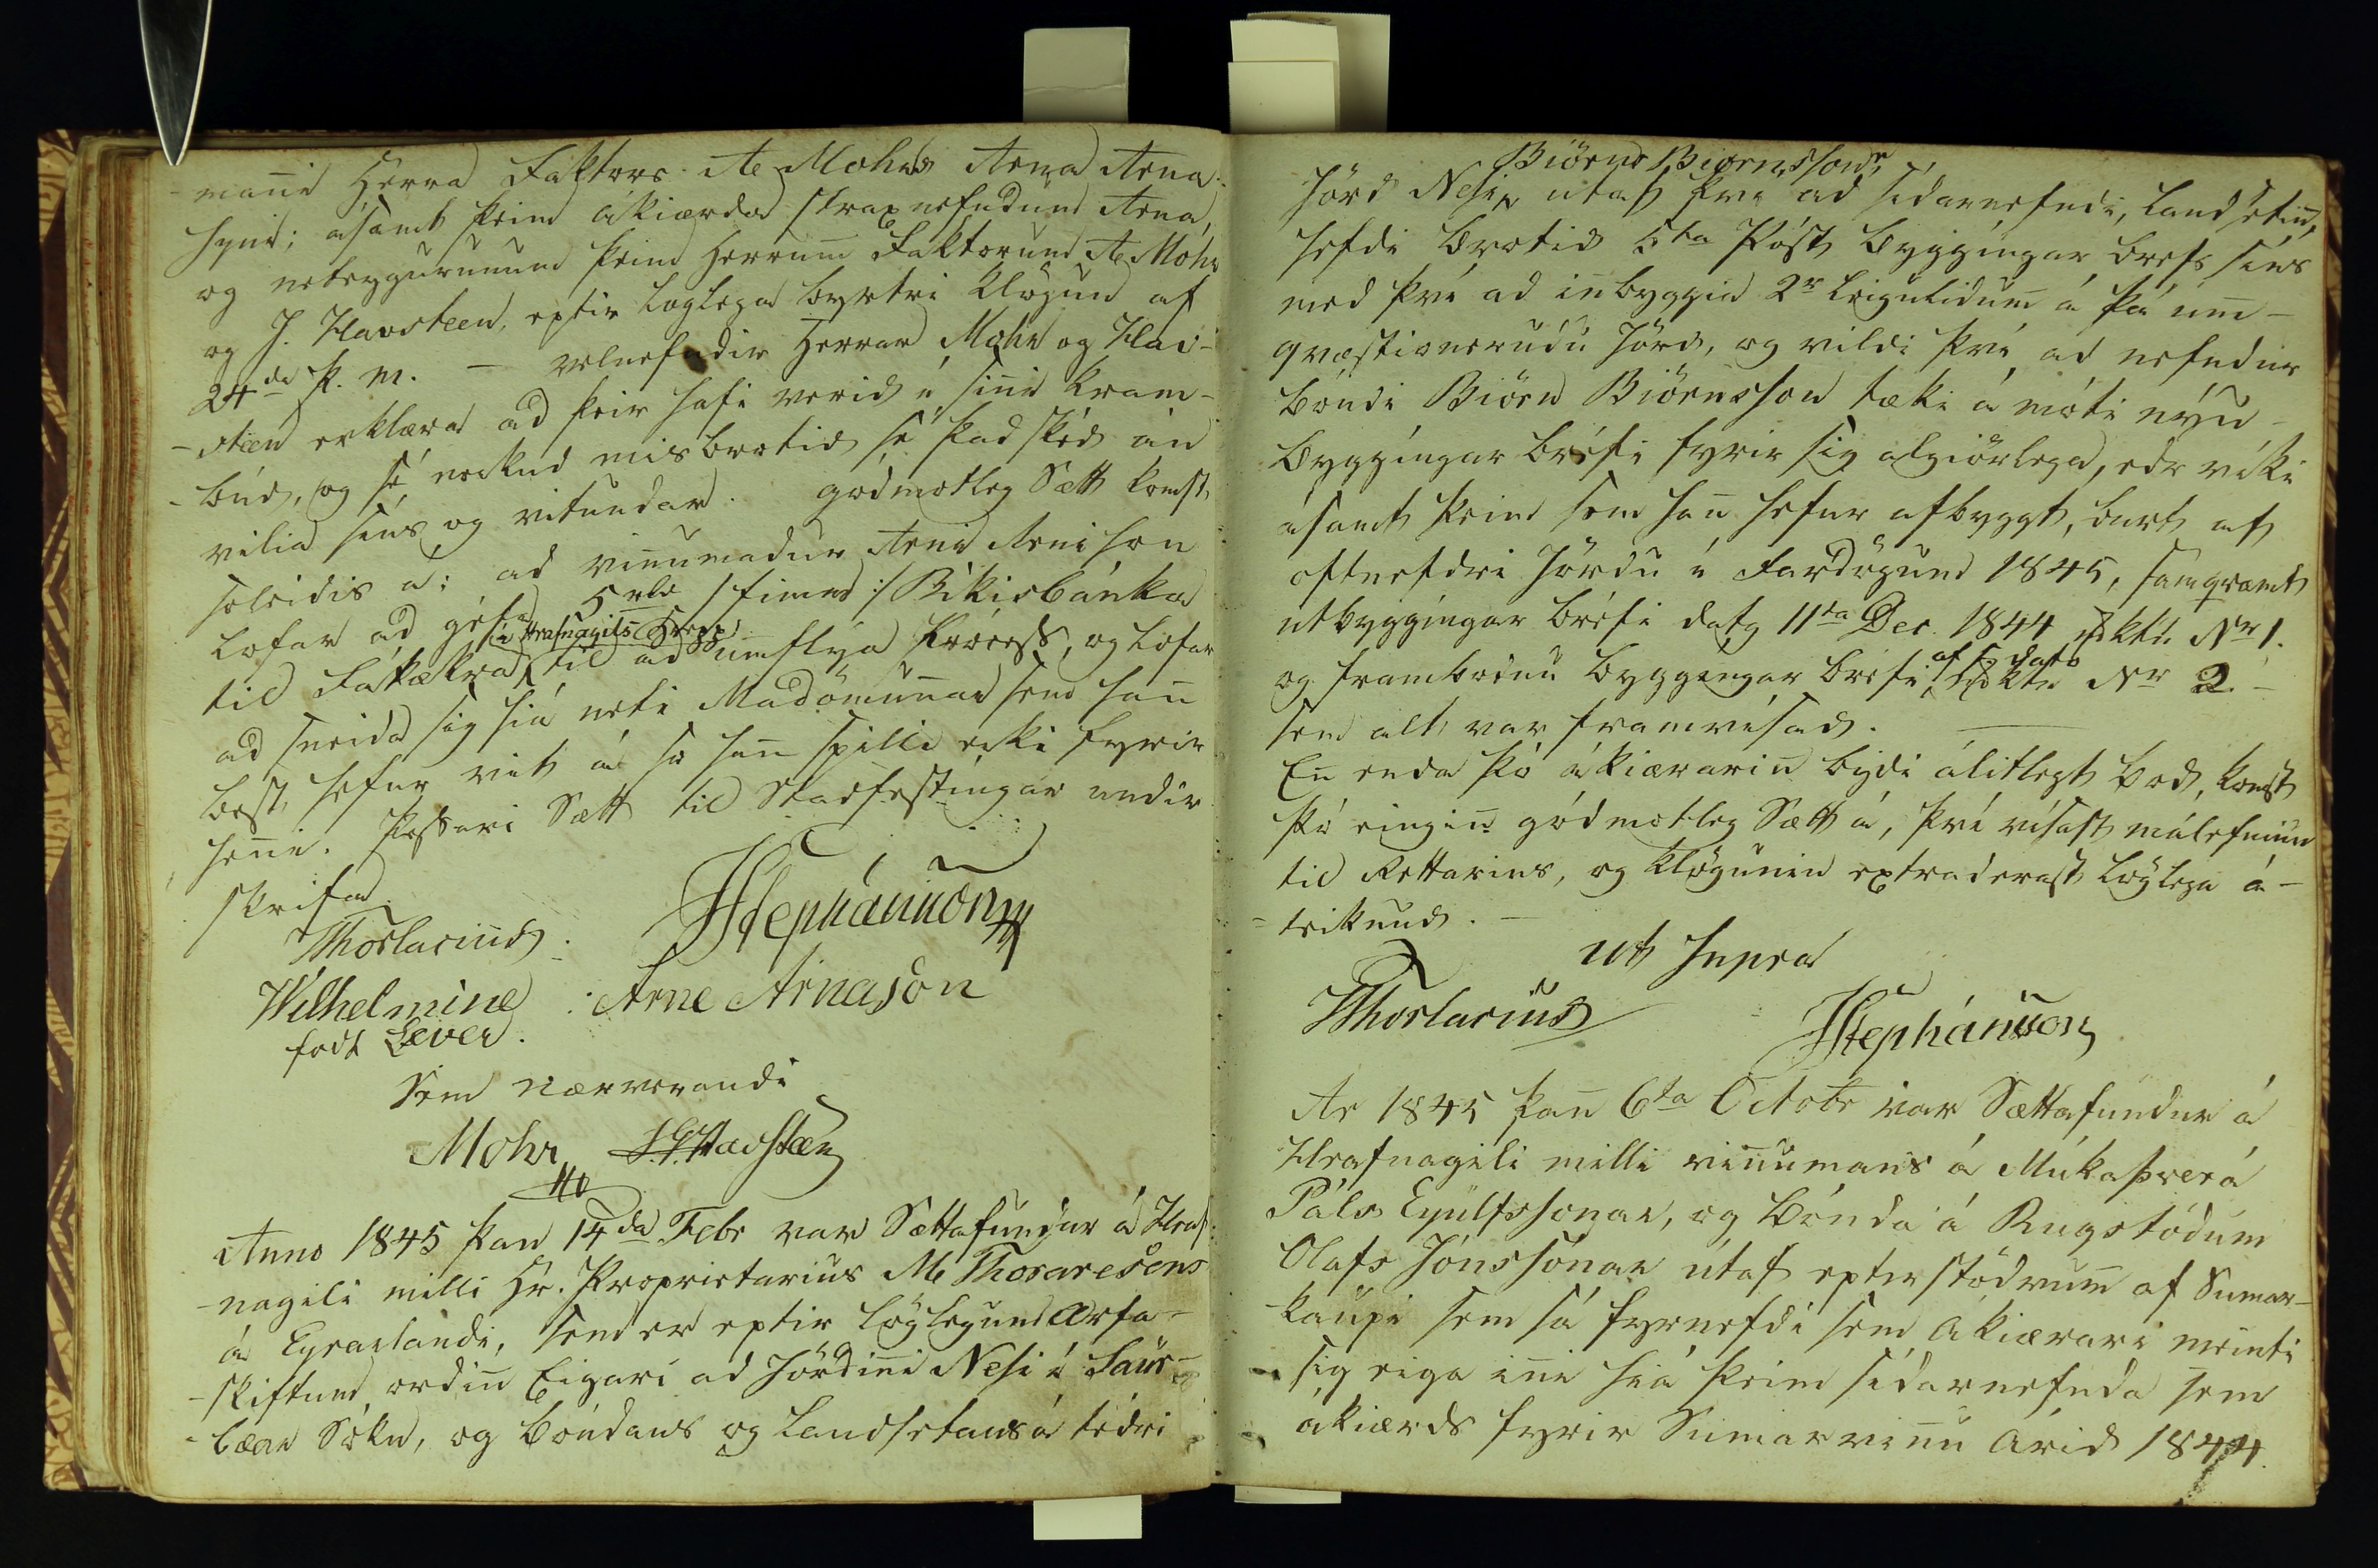 -manni Herra Faktors A. Mohrs Arna Arna
syni; ásamt þeim ákiærda strax nefndum Arna,
og vebeygurunum þeim Herrum Faktorum A. Mohr
og J. Havsteen, eptir löglega byrtri Klögun af
24da þ. m. — velnefndir Herrar Mohr og Hav-
-steen erklæra ad þeir hafi verid í sinni Kram-
-búd, og sé nockud misbrotid sé þad sked án
vilia síns og vitundar. gódmotleg Sætt komst
soleidis á: ad vinnumadur Arni Arnison
lofar ad géfa 5 rbd /:fimm:/ Ríkisbánka
til Fátækra í Hrafnagils Hrepp til ad umflýa Process, og lofar
ad sneida sig hiá neti Madömunnar sem hann
best hefur vit á so hann spilli ecki fyrir
henni. Þessari Sætt til Stadfestíngar undir
skrifad.
Thorlacius. HStephánsson
Wilhelmine Arne Arnason
födt Lever.
Sem nærverandi
Mohr J.G. Havsteen
Anno 1845 þan 14da Febr var Sættafundur á Hraf-
-nagili milli Hr. Proprietarius M Thoraresens
á Eyrarlandi, sem er eptir löglegum Arfa-
-skiftum ordin Eigari ad Jördinni Nesi í Saur-
-bæar Sókn, og bóndans og Landsetans á tédri
Jörd Nesi, Biörns Biörnssonr, útaf því ad sídarnefndi, landsetin,
hefdi brotid 5ta Póst byggíngar brefs síns
med því ad innbyggia 2r leigulidum á þá um-
qvæstionerudu Jörd, og vildi því ad nefndur
bóndi Biörn Biörnsson tæki á móti nýu
byggíngar bréfi fyrir sig algiörlega, edr víki
ásamt þeim sem hann hefur afbyggt, burt af
oftnefdri Jördu í Fardögum 1845, samqvæmt
utbyggíngar bréfi datg 11ta Dec. 1844 Nr 1.
og frambodnu byggíngar bréfi af s. dato Nr 2.—
sem alt var framvísad.
En enda þó ákiærarin bydi álitlegt bod, komst
þó eingin gódmotleg Sætt á, því vísast málefnium
til Rettarins, og Klögunin extraderast löglega á-
-teiknud.—
ut supra
Thorlacius HStephánsson
Ar 1845 þann 6ta Octobr var Sættafundur á
Hrafnagili milli vinnumans á Múkaþverá
Páls Eyulfssonar, og bónda á Rugstödum
Olafs Jónssonar útaf eptirstödvum af Sumar-
-kaupi sem sá fyrnefdi sem Akiærari meinti
sig eiga inni hiá þeim sídarnefnda sem
ákiærds fyrir Sumarvinnu Árid 1844.